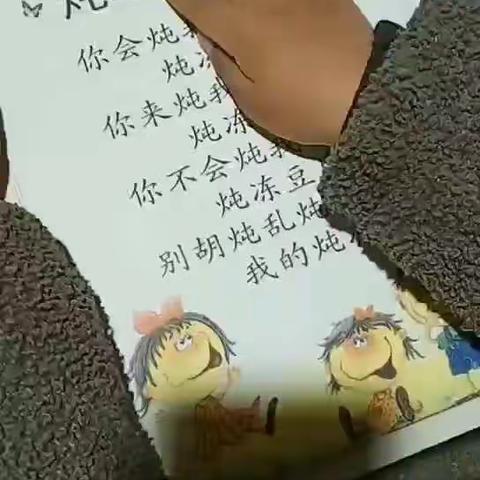 炖
你会炖我
炖冻
你来炖我
炖冻
你不会炖我
炖冻豆
别胡炖乱炖
我的炖